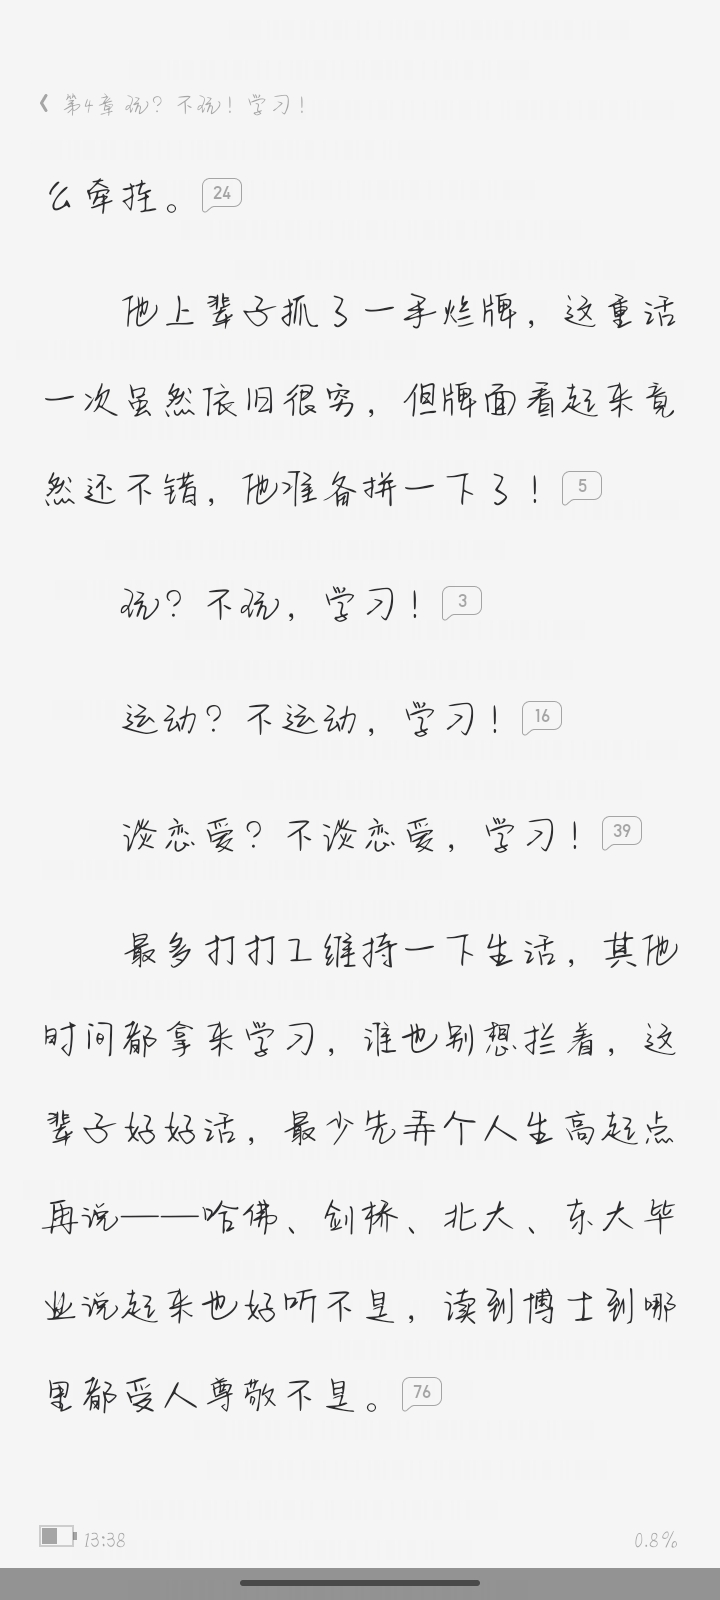 《 第4章 玩？不玩！学习！
么牵挂。 24
他上辈子抓了一手烂牌，这重活
一次虽然依旧很穷，但牌面看起来竟
然还不错，他准备拼一下了！ 5
玩？不玩，学习！ 3
运动？不运动，学习！ 16
谈恋爱？不谈恋爱，学习！ 39
最多打打工维持一下生活，其他
时间都拿来学习，谁也别想拦着，这
辈子好好活，最少先弄个人生高起点
再说——哈佛、剑桥、北大、东大毕
业说起来也好听不是，读到博士到哪
里都受人尊敬不是。 76
13:38
0.8%